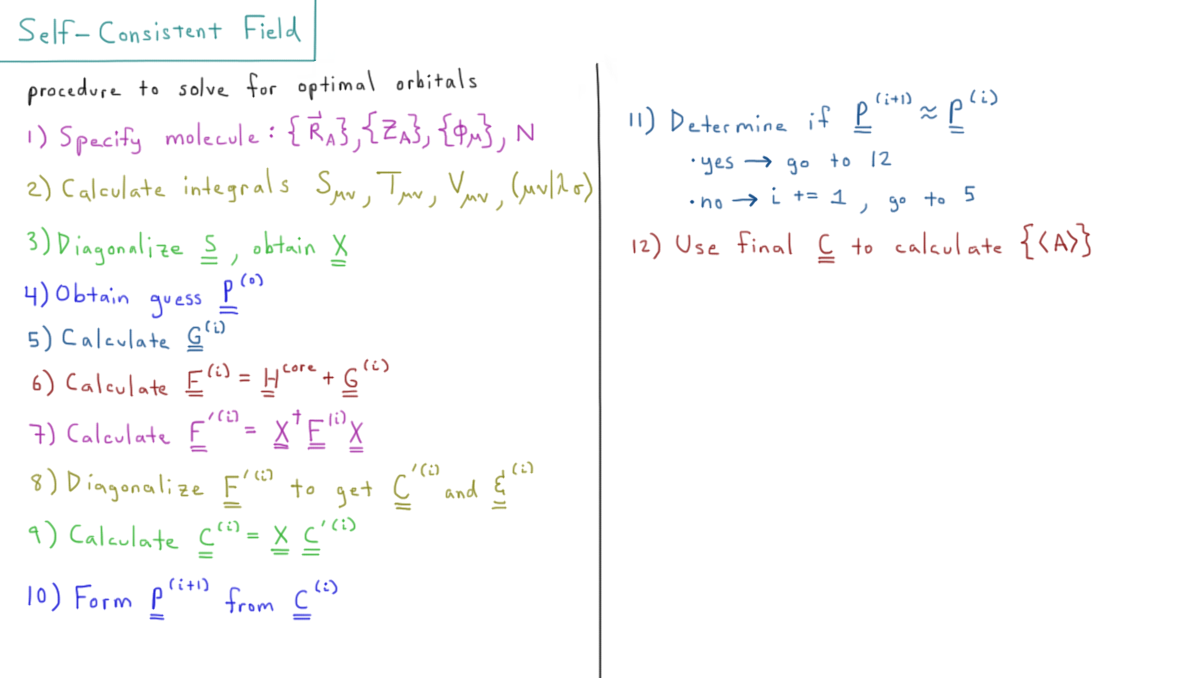 Self-Consistent Field
procedure to solve for optimal orbitals
1) Specify molecule: {R⃗_A}, {Z_A}, {ϕ_μ}, N
2) Calculate integrals S_μν, T_μν, V_μν, (μν|λσ)
3) Diagonalize S, obtain X
4) Obtain guess P^(0)
5) Calculate G^(i)
6) Calculate F^(i) = H^core + G^(i)
7) Calculate F'^(i) = X^† F^(i) X
8) Diagonalize F'^(i) to get C'^(i) and ε^(i)
9) Calculate C^(i) = X C'^(i)
10) Form P^(i+1) from C^(i)
11) Determine if P^(i+1) ≈ P^(i)
• yes → go to 12
• no → i += 1, go to 5
12) Use final C to calculate {⟨A⟩}